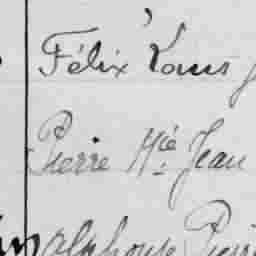 Félix Louis
Pierre Mie Jean
alphonse Pierre